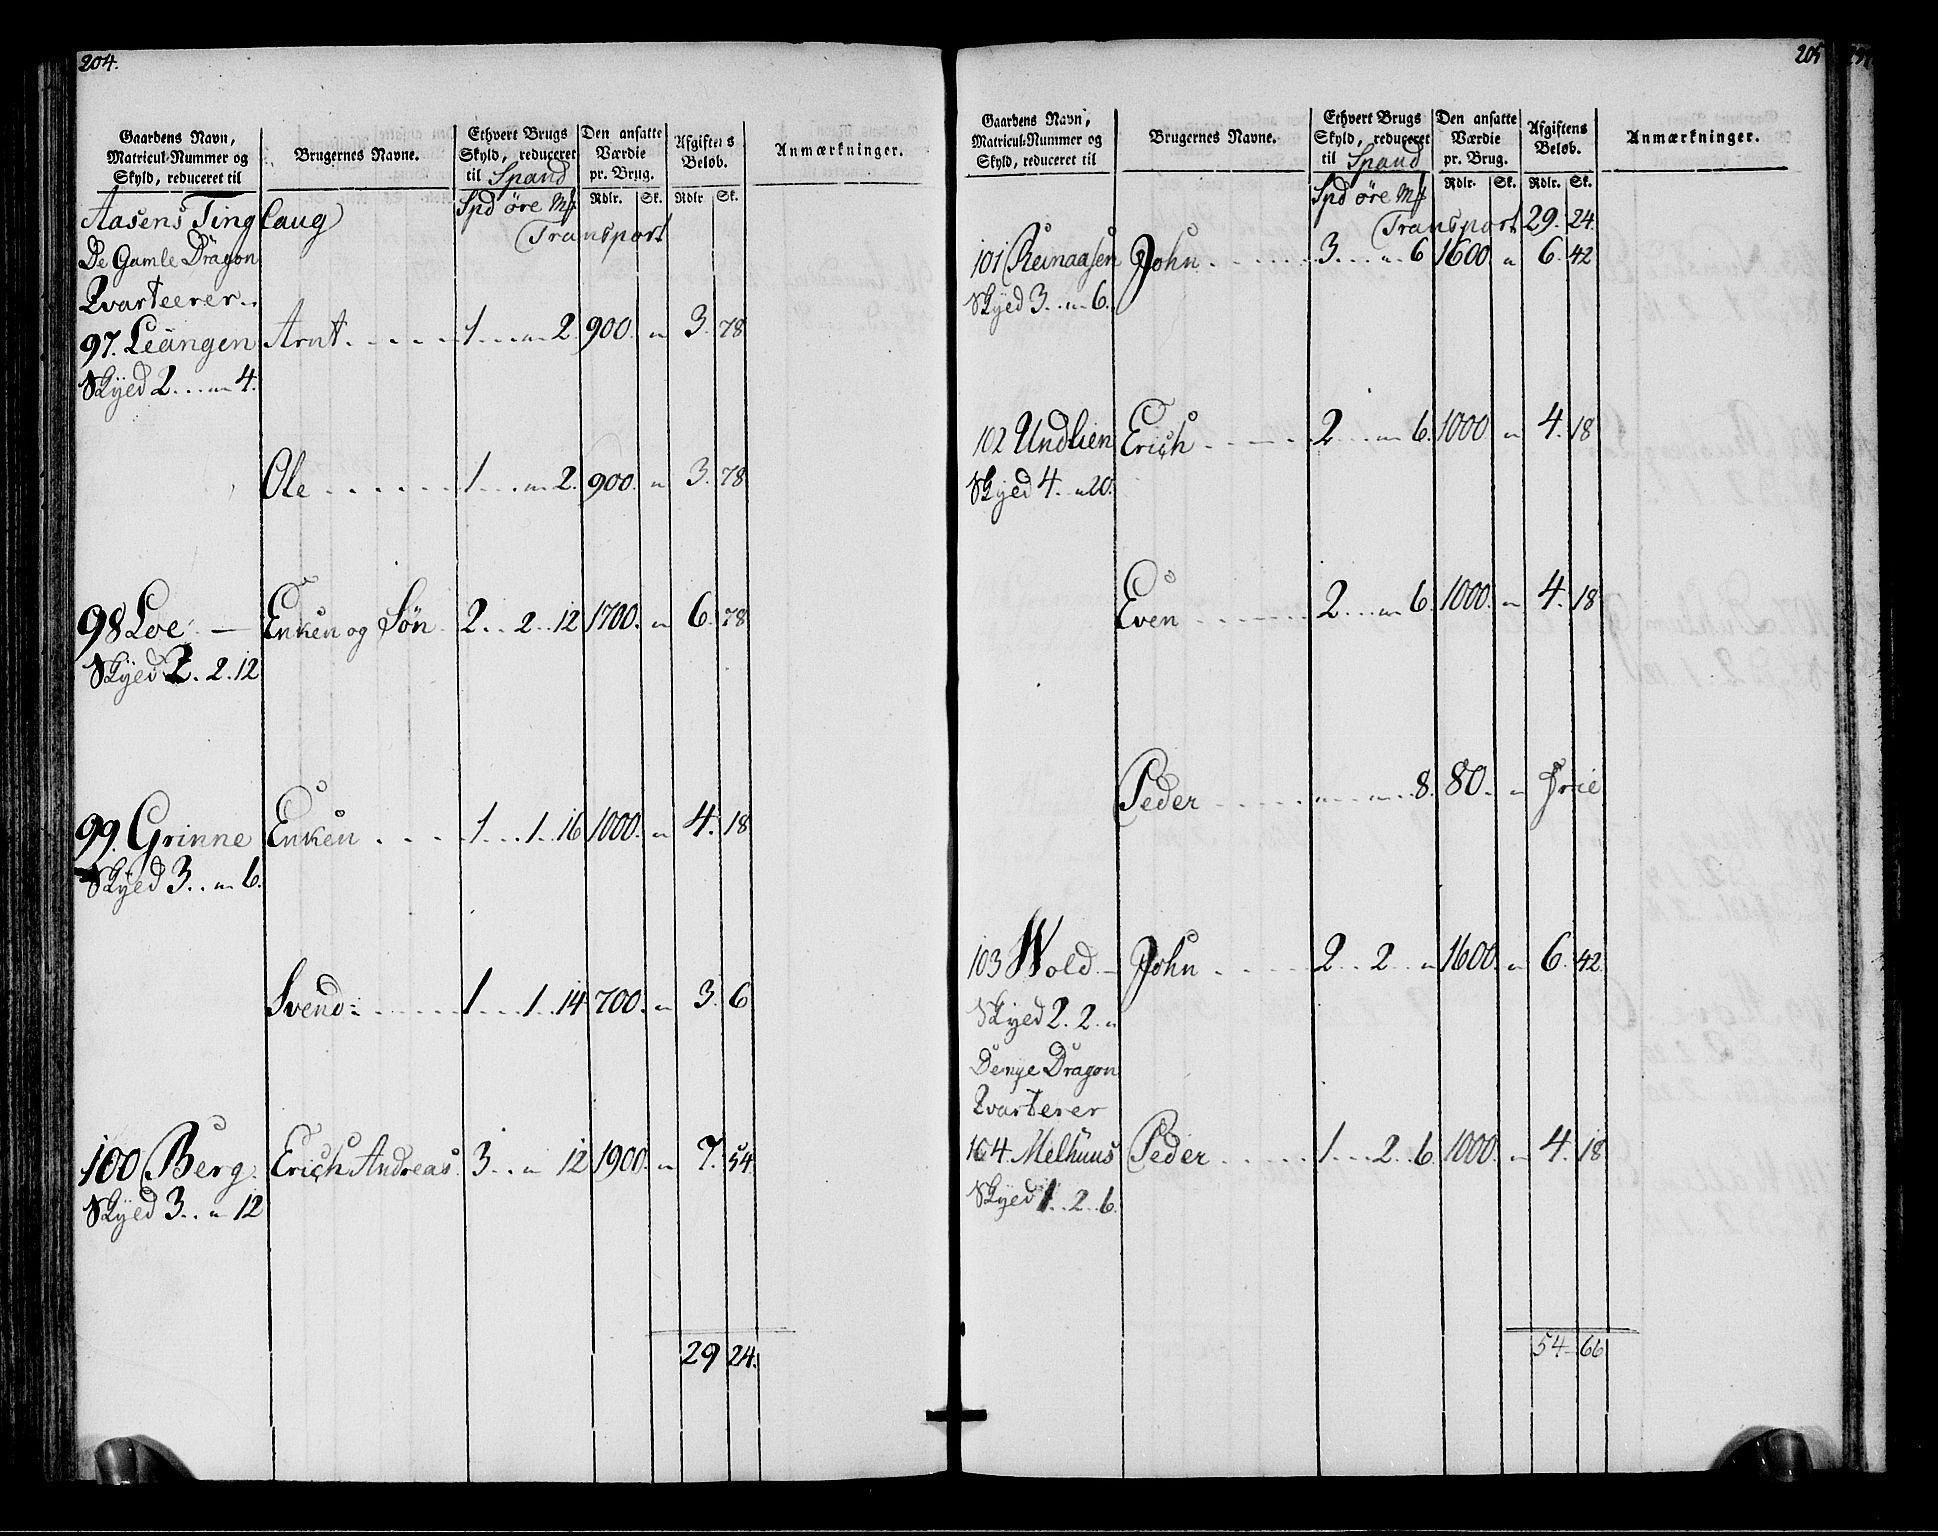 204.
Gaardens Navn, Matricul-Nummer og Skyld, reduceret til
Brugernes Navne.
Ethvert Brugs Skyld, reduceret til Spand
Den ansatte Værdie pr. Brug.
Afgiftens Beløb.
Anmærkninger.
Spd øre Mk Rdlr. Sk. Rdlr Sk.
Aasens Ting laug
Transport
De Gamle Dragon
Qvarteerer..
97. Leangen Arnt. 1 . . . " 2. 900. " 3. 78
Skyed 2 . . . " 4.
Ole 1 . . . " 2. 900. " 3. 78
98 Loe — Enken og Søn. 2 . . 2 . . 12 1700. " 6. 78
Skyed 2. 2. 12
99. Grinne Enken 1 . . . 1 . . 16 1000. " 4. 18
Skyed 3. . " 6.
Svend: 1 . . . 1. 14 700. " 3. 6
100 Berg. Erich Andreas. 3. . " 12 1900. " 7. 54
Skyed 3. . " 12
29 24.
205
Gaardens Navn, Matricul-Nummer og Skyld, reduceret til
Brugernes Navne.
Ethvert Brugs Skyld, reduceret til Spand
Den ansatte Værdie pr. Brug.
Afgiftens Beløb.
Anmærkninger.
Spd øre Mk Rdlr. Sk. Rdlr. Sk.
Transport 29. 24.
101 Reinaasen John 3. . . " 6 1600. " 6. 42
Skyed 3. . " 6.
102 Undlien Erich 2 . . . " 6. 1000. " 4. 18
Skyed 4. " 20.
Even 2 . . . " 6. 1000. " 4. 18
Peder " . . . " . . 8. 80. " Frie
103 Wold — John 2 . . 2 . . " 1600. " 6. 42
Skyed 2. 2. "
De nye Dragon
Qvarterer
104. Melhuus Peder 1 . . . 2. . 6. 1000. " 4. 18
Skyed 1. . 2 . . 6.
54 — 66